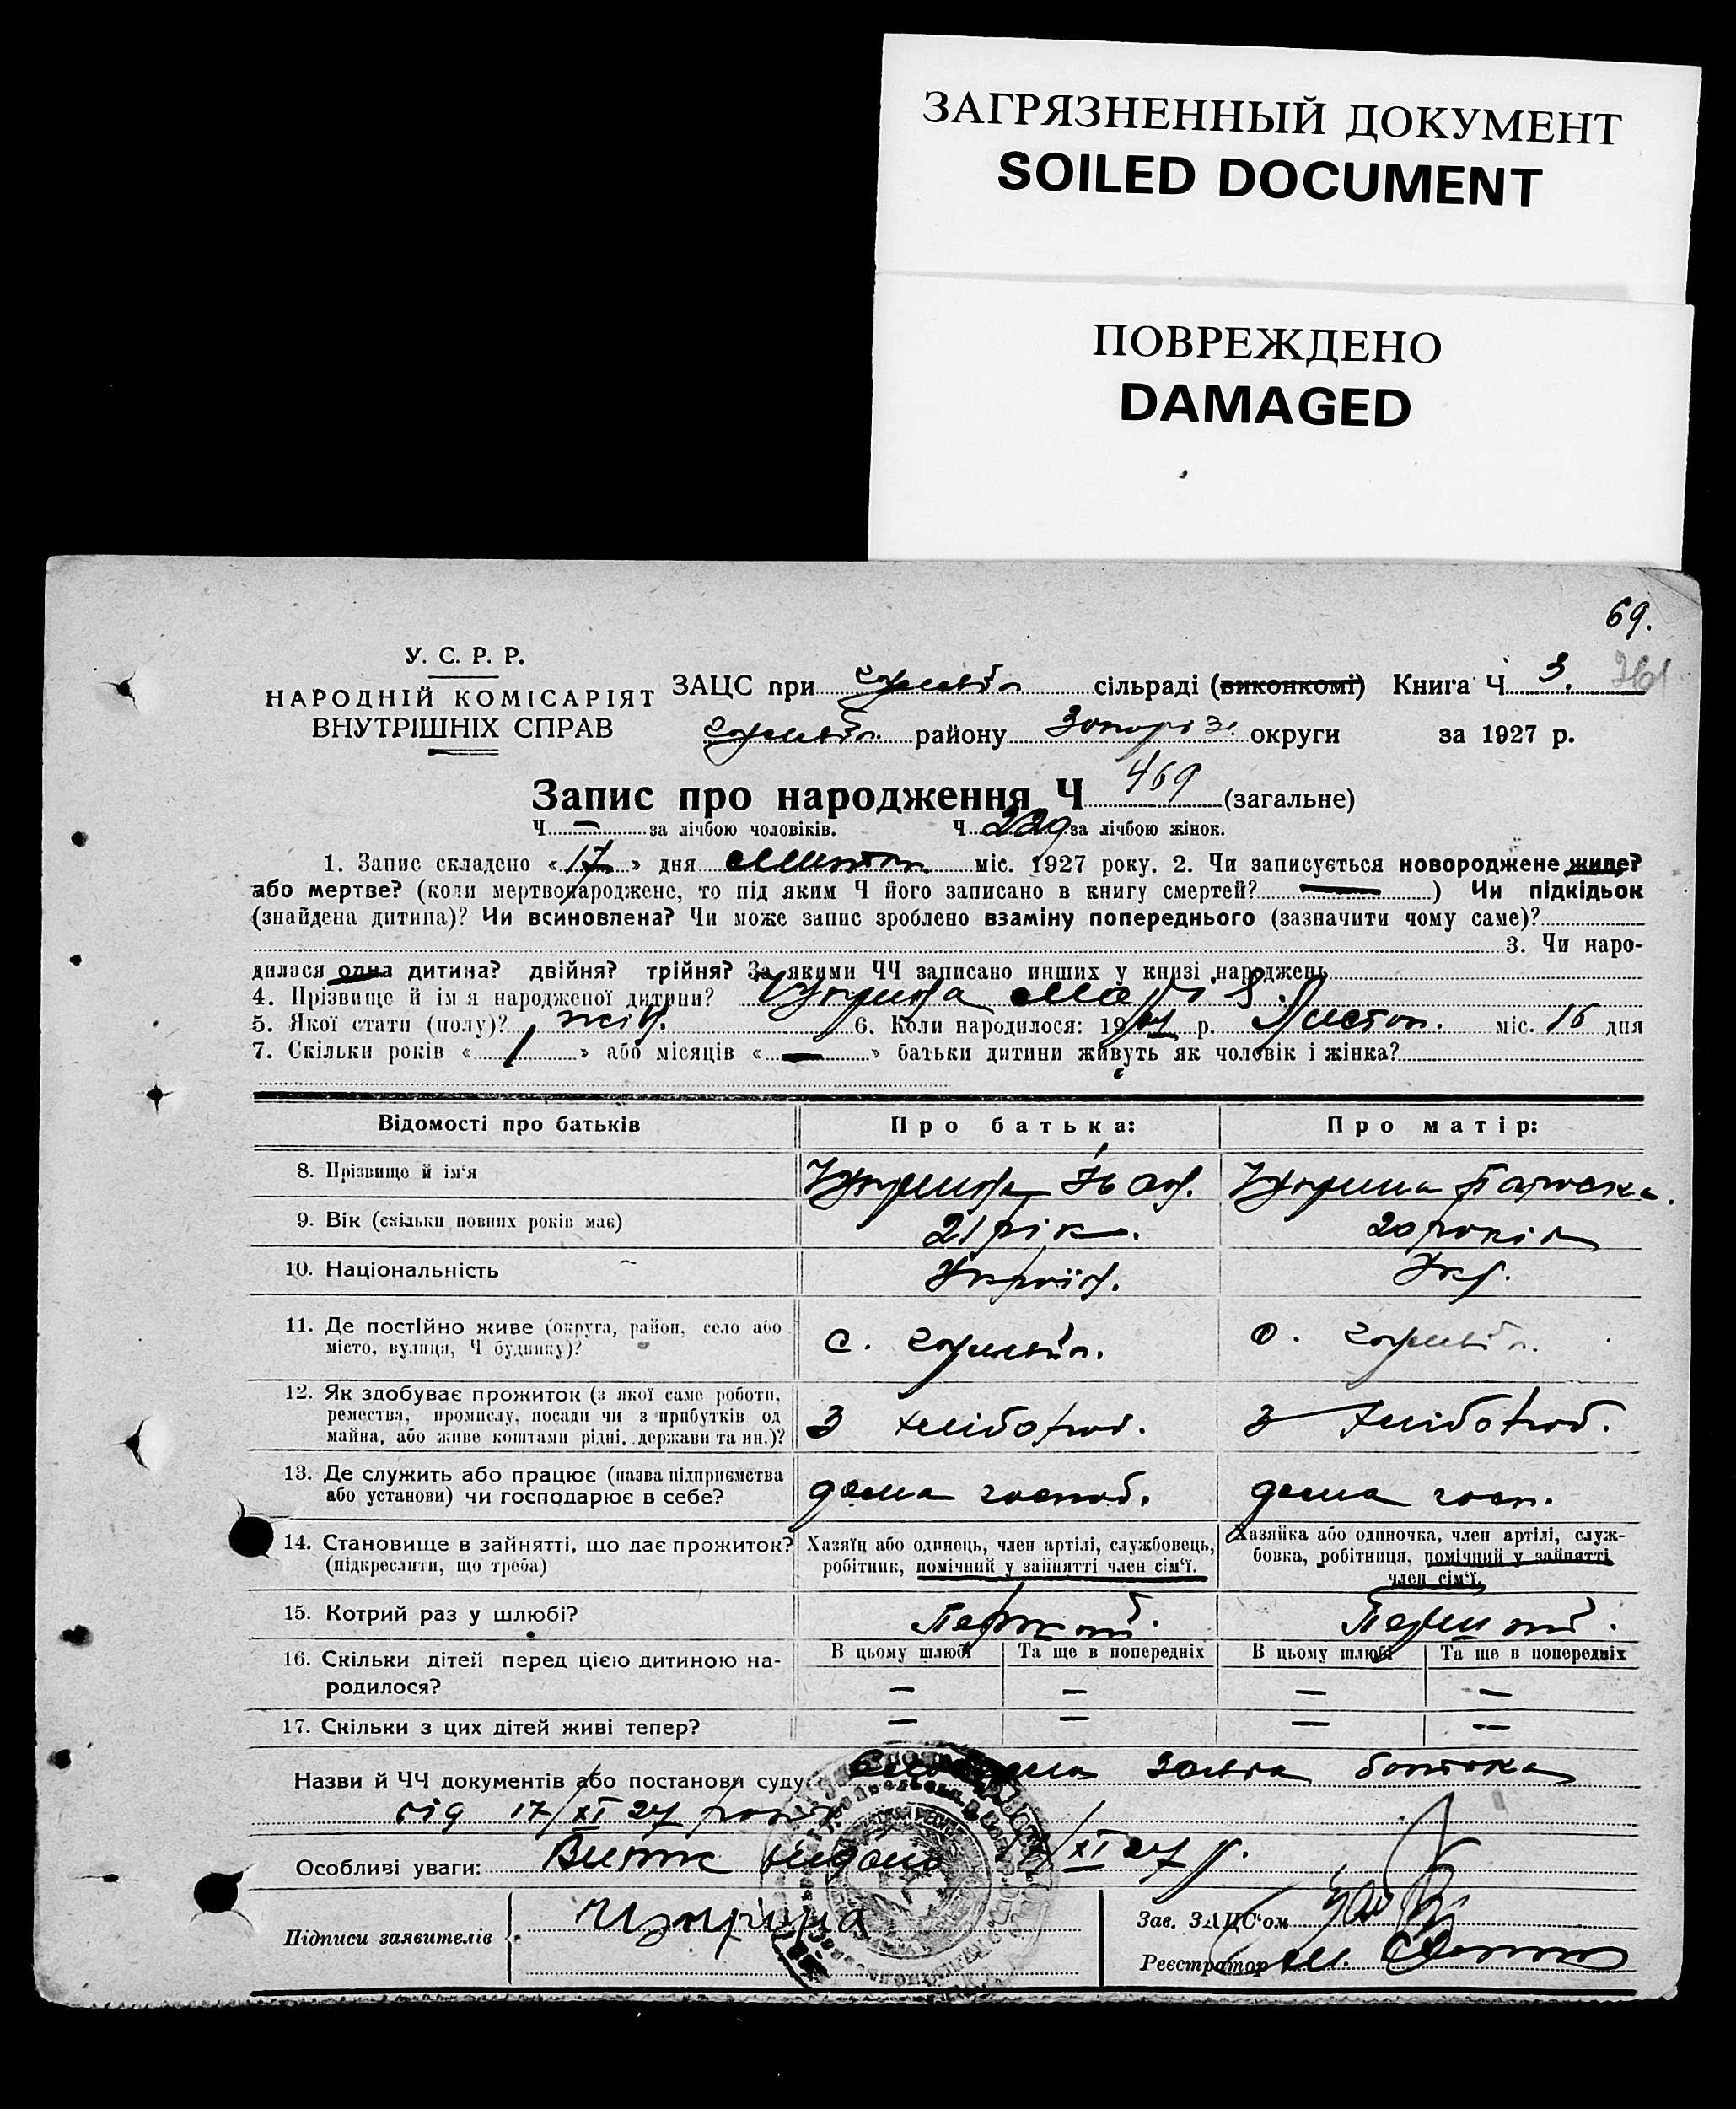 ЗАГРЯЗНЕННЫЙ ДОКУМЕНТ
SOILED DOCUMENT
ПОВРЕЖДЕНО
DAMAGED
69.
У. С. Р. Р.
НАРОДНІЙ КОМІСАРІЯТ
ВНУТРІШНІХ СПРАВ
ЗАЦС при сільраді (виконкомі) Книга Ч 3.
району округи за 1927 р.
Запис про народження Ч 469 (загальне)
Ч. — за лічбою чоловіків. Ч. 229 за лічбою жінок.
1. Запис складено « 17 » дня міс. 1927 року. 2. Чи записується новороджене живе?
або мертве? (коли мертвонароджене, то під яким Ч його записано в книгу смертей? — ) Чи підкідьок
(знайдена дитина)? Чи всиновлена? Чи може запис зроблено взаміну попереднього (зазначити чому саме)?
3. Чи наро-
дилася одна дитина? двійня? трійня? За якими ЧЧ записано инших у книзі народжень
4. Прізвище й ім'я народженої дитини?
5. Якої стати (полу)? жін. 6. Коли народилося: 1927 р. Листоп. міс. 16 дня
7. Скільки років « 1 » або місяців « — » батьки дитини живуть як чоловік і жінка?
Відомості про батьків Про батька: Про матір:
8. Прізвище й ім'я
9. Вік (скільки повних років має) 21 рік. 20 років
10. Національність Україн. Укр.
11. Де постійно живе (округа, район, село або
місто, вулиця, Ч будинку)? с. с.
12. Як здобуває прожиток (з якої саме роботи,
ремества, промислу, посади чи з прибутків од
майна, або живе коштами рідні, держави та ин.)? З хлібороб. З хлібороб.
13. Де служить або працює (назва підприємства
або установи) чи господарює в себе? дома господ. дома госп.
14. Становище в зайнятті, що дає прожиток?
(підкреслити, що треба)
Хазяїн або одинець, член артілі, службовець,
робітник, помічний у зайнятті член сім'ї.
Хазяйка або одиночка, член артілі, служ-
бовка, робітниця, помічний у зайнятті
член сім'ї.
15. Котрий раз у шлюбі? Перший. Перший.
16. Скільки дітей перед цією дитиною на-
родилося?
В цьому шлюбі Та ще в попередніх В цьому шлюбі Та ще в попередніх
— — — —
17. Скільки з цих дітей живі тепер? — — — —
Назви й ЧЧ документів або постанови суду: заява батька
від 17/XI 27 року
Особливі уваги: Витяг видано 17/XI 27 р.
Підписи заявителів
Зав. ЗАЦС'ом
Реєстратор